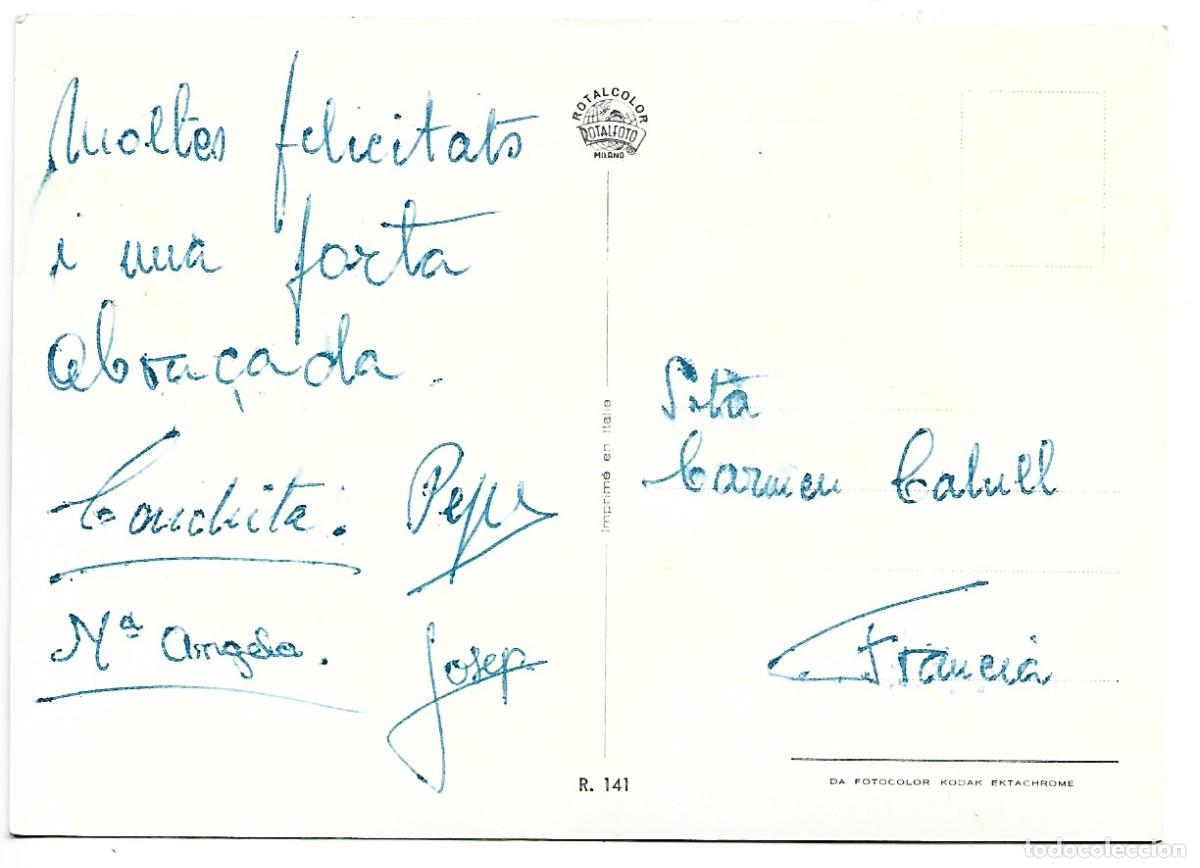 Moltes felicitats
i una forta
abraçada.
Conchita. Pepe
Mª Angela. Josep
ROTALCOLOR
ROTALFOTO
MILANO
Imprimé en Italie
R. 141
Srta
Carmen Calull
Francia
DA FOTOCOLOR KODAK EKTACHROME
todocoleccion